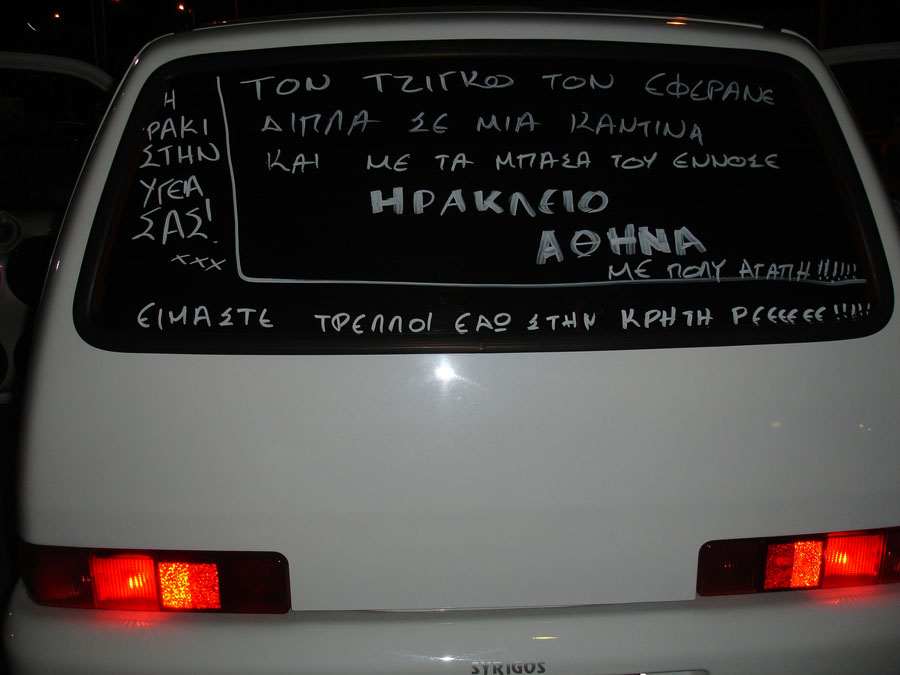 Η
ΡΑΚΙ
ΣΤΗΝ
ΥΓΕΙΑ
ΣΑΣ!
xxx
ΤΟΝ ΤΖΙΓΚΟ ΤΟΝ ΕΦΕΡΑΝΕ
ΔΙΠΛΑ ΣΕ ΜΙΑ ΚΑΝΤΙΝΑ
ΚΑΙ ΜΕ ΤΑ ΜΠΑΣΑ ΤΟΥ ΕΝΝΟΣΕ
ΗΡΑΚΛΕΙΟ
ΑΘΗΝΑ
ΜΕ ΠΟΛΥ ΑΓΑΠΗ!!!!!!
ΕΙΜΑΣΤΕ ΤΡΕΛΛΟΙ ΕΔΩ ΣΤΗΝ ΚΡΗΤΗ ΡΕΕΕΕΕΕ!!!!!
SYRIGOS